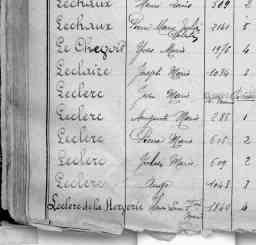 Lechaux Marie Louis 509 2
Lechaux Pierre Marie Jules 2161 5
Le Chegoit Yves Marie 19/8 4
Leclaire Joseph Marie 1034 3
Leclerc Jean Marie
Leclerc Auguste Marie 285 1
Leclerc Pierre Marie 608 2
Leclerc Jules Marie 609 2
Leclerc Ange 1043 3
Leclerc de la Herverie 1840 4